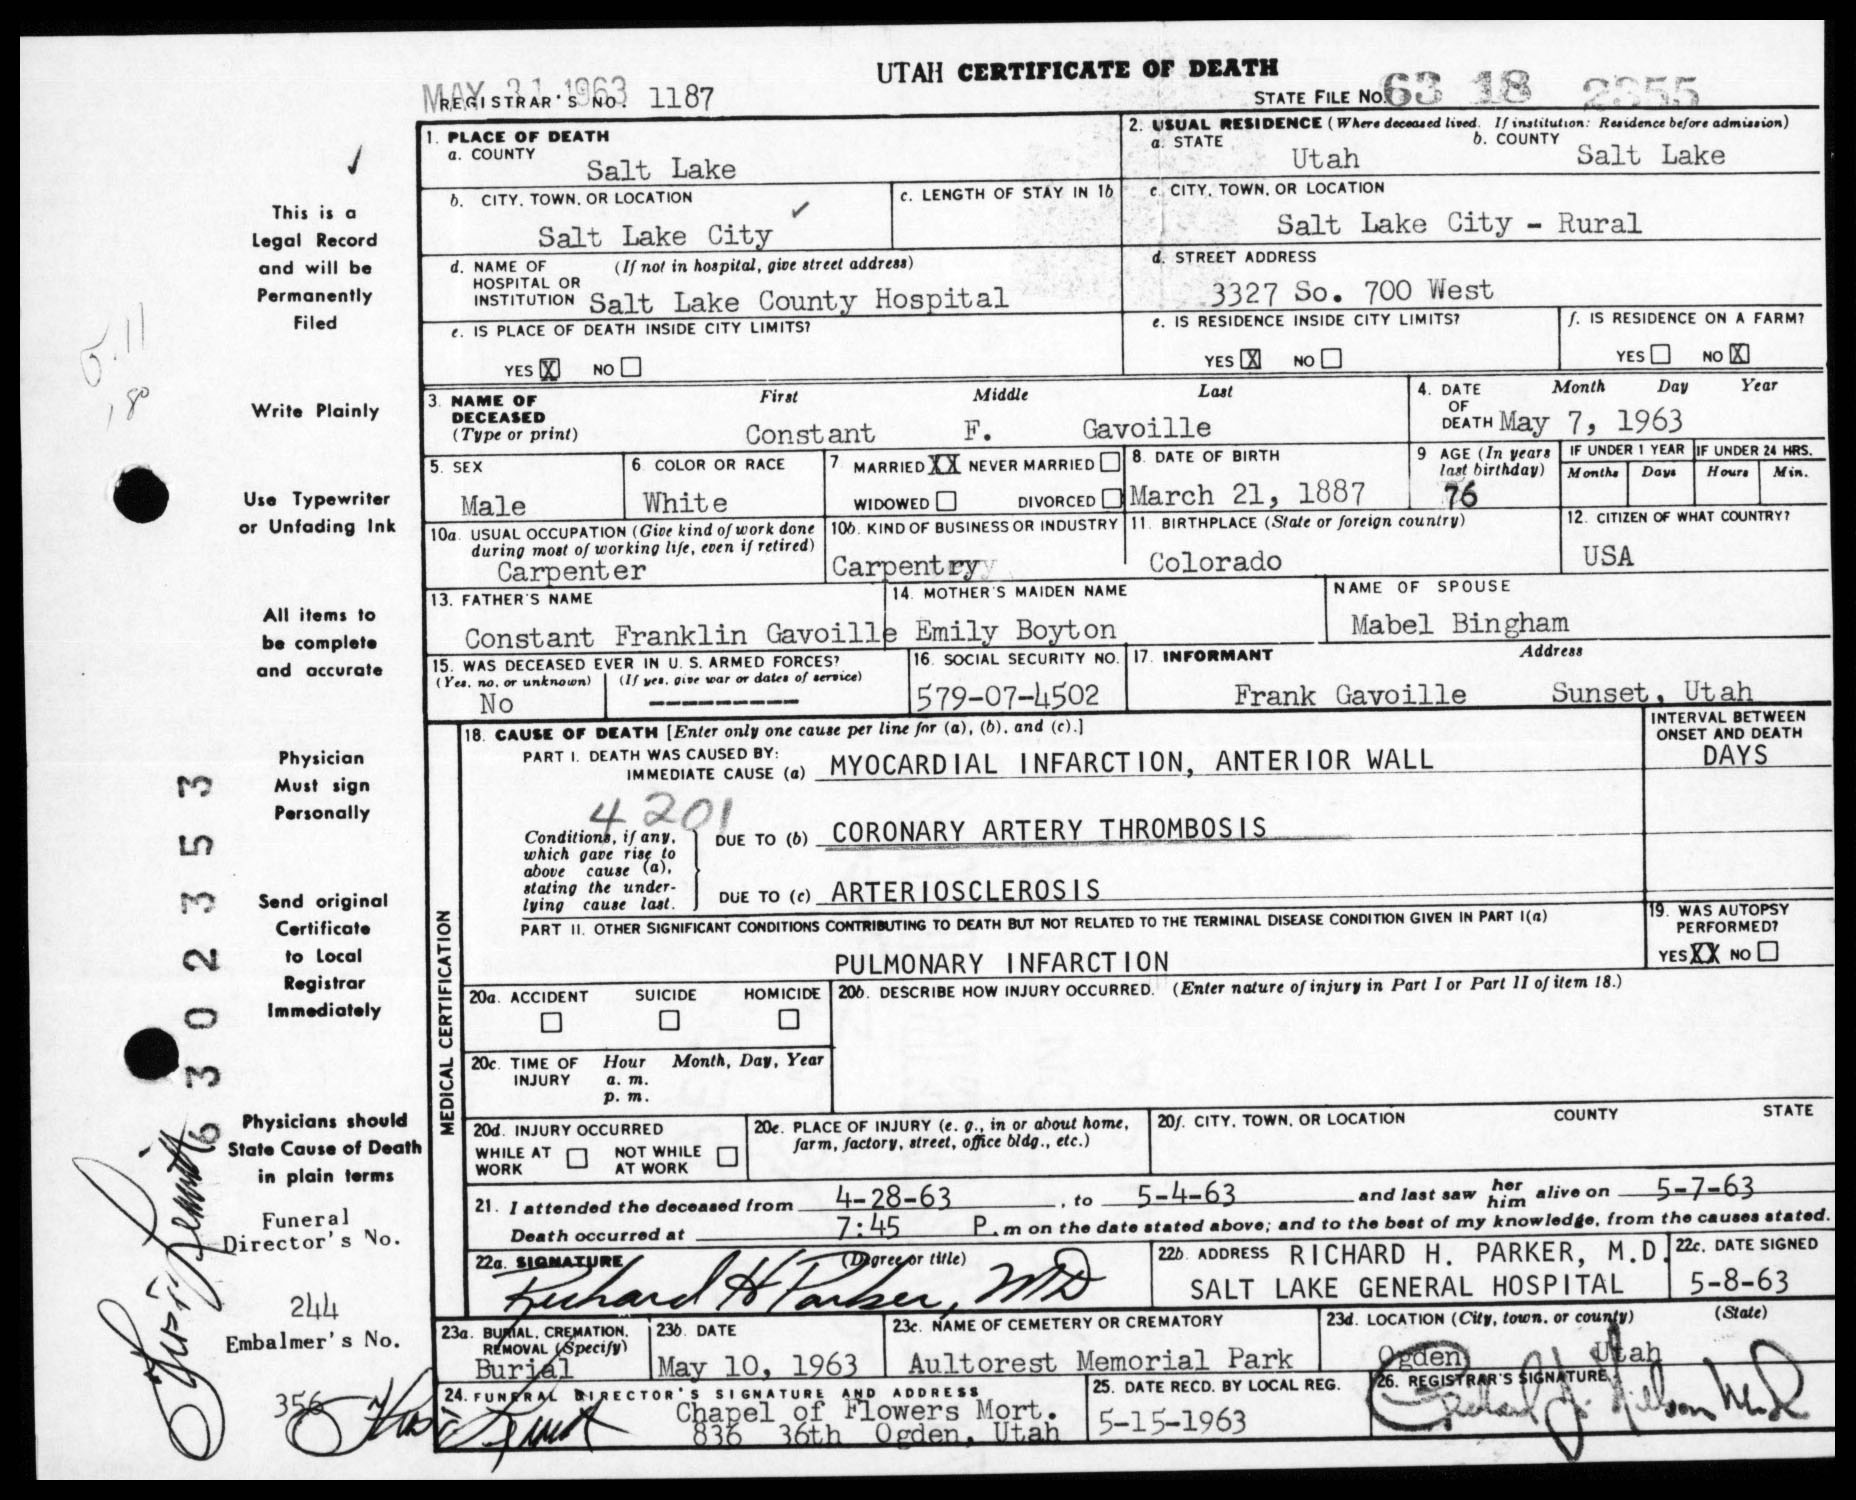 UTAH CERTIFICATE OF DEATH
MAY 31 1963
REGISTRAR'S NO. 1187
STATE FILE NO. 63 18 2355
1. PLACE OF DEATH
a. COUNTY
Salt Lake
2. USUAL RESIDENCE (Where deceased lived. If institution: Residence before admission)
a. STATE
Utah
b. COUNTY
Salt Lake
b. CITY, TOWN, OR LOCATION
Salt Lake City
c. LENGTH OF STAY IN 1b
c. CITY, TOWN, OR LOCATION
Salt Lake City - Rural
d. NAME OF HOSPITAL OR INSTITUTION (If not in hospital, give street address)
Salt Lake County Hospital
d. STREET ADDRESS
3327 So. 700 West
e. IS PLACE OF DEATH INSIDE CITY LIMITS?
YES X NO
e. IS RESIDENCE INSIDE CITY LIMITS?
YES X NO
f. IS RESIDENCE ON A FARM?
YES NO X
3. NAME OF DECEASED (Type or print)
First Middle Last
Constant F. Gavoille
4. DATE OF DEATH
Month Day Year
May 7, 1963
5. SEX
Male
6. COLOR OR RACE
White
7. MARRIED XX NEVER MARRIED
WIDOWED DIVORCED
8. DATE OF BIRTH
March 21, 1887
9. AGE (In years last birthday)
76
IF UNDER 1 YEAR
Months Days
IF UNDER 24 HRS.
Hours Min.
10a. USUAL OCCUPATION (Give kind of work done during most of working life, even if retired)
Carpenter
10b. KIND OF BUSINESS OR INDUSTRY
Carpentry
11. BIRTHPLACE (State or foreign country)
Colorado
12. CITIZEN OF WHAT COUNTRY?
USA
13. FATHER'S NAME
Constant Franklin Gavoille
14. MOTHER'S MAIDEN NAME
Emily Boyton
NAME OF SPOUSE
Mabel Bingham
15. WAS DECEASED EVER IN U. S. ARMED FORCES?
(Yes, no, or unknown) (If yes, give war or dates of service)
No ---------
16. SOCIAL SECURITY NO.
579-07-4502
17. INFORMANT Address
Frank Gavoille Sunset, Utah
MEDICAL CERTIFICATION
18. CAUSE OF DEATH [Enter only one cause per line for (a), (b), and (c).]
INTERVAL BETWEEN ONSET AND DEATH
PART I. DEATH WAS CAUSED BY:
IMMEDIATE CAUSE (a) MYOCARDIAL INFARCTION, ANTERIOR WALL
DAYS
4201
Conditions, if any, which gave rise to above cause (a), stating the underlying cause last.
DUE TO (b) CORONARY ARTERY THROMBOSIS
DUE TO (c) ARTERIOSCLEROSIS
PART II. OTHER SIGNIFICANT CONDITIONS CONTRIBUTING TO DEATH BUT NOT RELATED TO THE TERMINAL DISEASE CONDITION GIVEN IN PART I(a)
PULMONARY INFARCTION
19. WAS AUTOPSY PERFORMED?
YES XX NO
20a. ACCIDENT SUICIDE HOMICIDE
20b. DESCRIBE HOW INJURY OCCURRED. (Enter nature of injury in Part I or Part II of item 18.)
20c. TIME OF INJURY
Hour Month, Day, Year
a. m.
p. m.
20d. INJURY OCCURRED
WHILE AT WORK NOT WHILE AT WORK
20e. PLACE OF INJURY (e. g., in or about home, farm, factory, street, office bldg., etc.)
20f. CITY, TOWN, OR LOCATION COUNTY STATE
21. I attended the deceased from 4-28-63, to 5-4-63 and last saw her him alive on 5-7-63
Death occurred at 7:45 P.m on the date stated above; and to the best of my knowledge, from the causes stated.
22a. SIGNATURE (Degree or title)
Richard H Parker, MD
22b. ADDRESS RICHARD H. PARKER, M.D.
SALT LAKE GENERAL HOSPITAL
22c. DATE SIGNED
5-8-63
23a. BURIAL, CREMATION, REMOVAL (Specify)
Burial
23b. DATE
May 10, 1963
23c. NAME OF CEMETERY OR CREMATORY
Aultorest Memorial Park
23d. LOCATION (City, town, or county) (State)
Ogden Utah
24. FUNERAL DIRECTOR'S SIGNATURE AND ADDRESS
Chapel of Flowers Mort.
836 36th Ogden, Utah
25. DATE RECD. BY LOCAL REG.
5-15-1963
26. REGISTRAR'S SIGNATURE
This is a
Legal Record
and will be
Permanently
Filed
Write Plainly
Use Typewriter
or Unfading Ink
All items to
be complete
and accurate
Physician
Must sign
Personally
Send original
Certificate
to Local
Registrar
Immediately
Physicians should
State Cause of Death
in plain terms
Funeral
Director's No.
244
Embalmer's No.
356
63023533